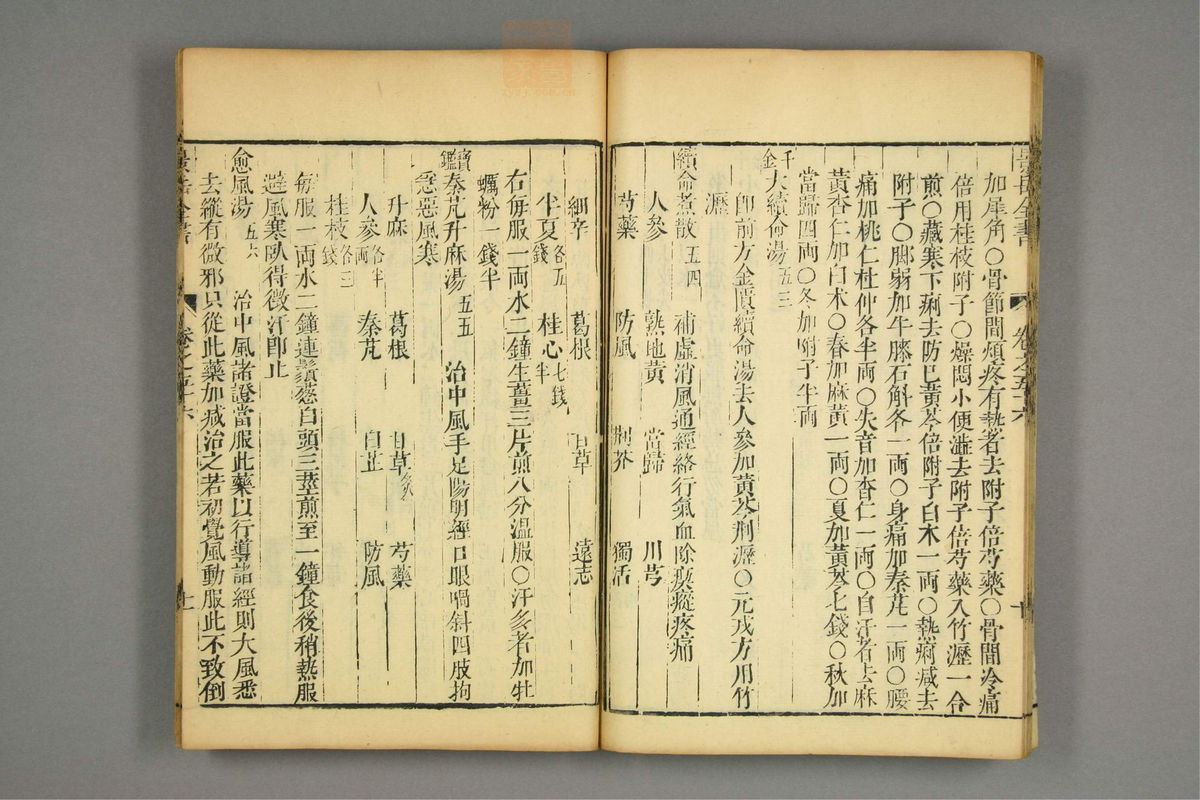 加犀角〇骨節間煩疼有熱者去附子倍芍藥〇骨間冷痛
倍用桂枝附子〇燥悶小便澁去附子倍芍藥入竹瀝一合
煎〇藏寒下痢去防已黃芩倍附子白术一両〇熱痢减去
附子〇脚弱加牛膝石斛各一両〇身痛加秦艽一両〇腰
痛加桃仁杜仲各半両〇失音加杏仁一両〇自汗者去麻
黃杏仁加白术〇春加麻黃一両〇夏加黃芩七錢〇秋加
當歸四両〇冬加附子半両
千金大續命湯五三
即前方金匱續命湯去人參加黃芩荆瀝〇元戎方用竹
瀝
續命煮散五四 補虛消風通經絡行氣血除瘈瘲疼痛
人參 熟地黃 當歸 川芎
芍藥 防風 荆芥 獨活
景岳全書 卷之五十六 十
細辛 葛根 甘草 遠志
半夏各五錢 桂心七錢半
右每服一両水二鐘生薑三片煎八分温服〇汗多者加牡
蠣粉一錢半
寶鑑秦艽升麻湯五五 治中風手足陽明經口眼喎斜四肢拘
急惡風寒
升麻 葛根 甘草 芍藥
人參各半両 秦艽 白芷 防風
桂枝各三錢
每服一両水二鐘連鬚葱白頭三莖煎至一鐘食後稍熱服
避風寒臥得微汗卽止
愈風湯五六 治中風諸證當服此藥以行導諸經則大風悉
去縱有微邪只從此藥加减治之若初覺風動服此不致倒
景岳全書 卷之五十六 十一